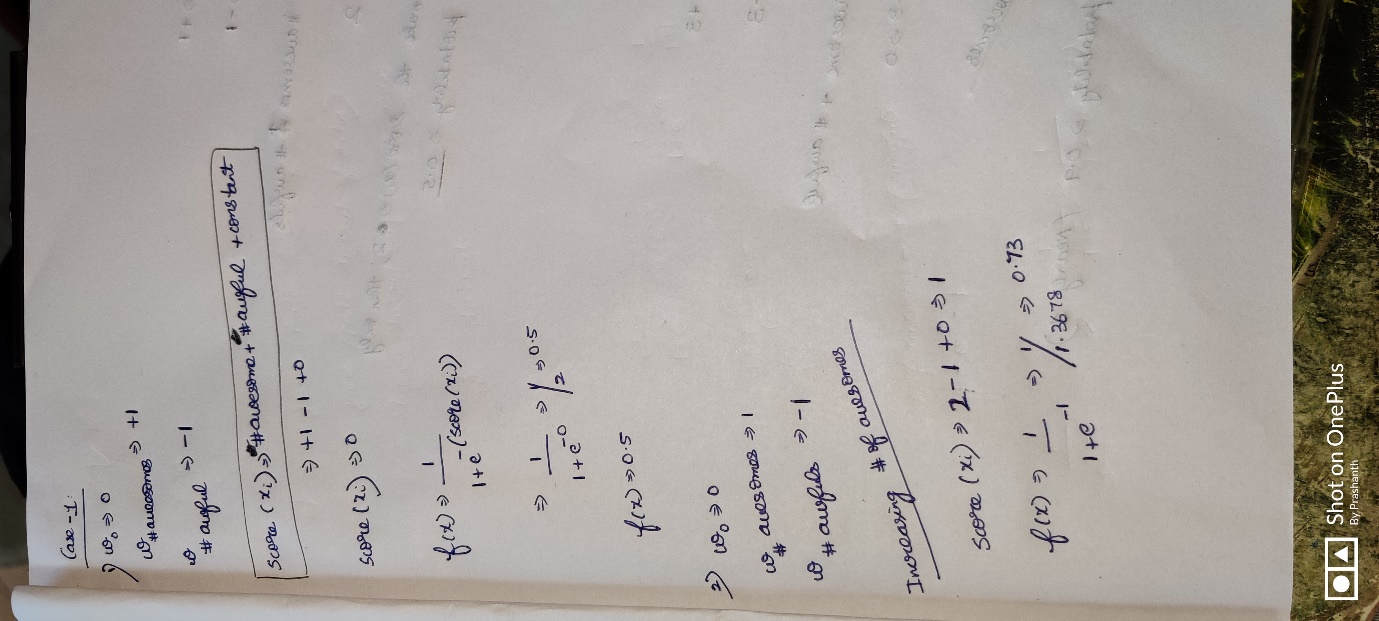 Case-1:
1) w₀ ⇒ 0
w #awesomes ⇒ +1
w #awful ⇒ -1
score (xi) ⇒ #awesome + #awful + constant
⇒ +1 -1 +0
score (xi) ⇒ 0
f(x) ⇒ 1 / 1+e^-(score(xi))
⇒ 1 / 1+e^-0 ⇒ 1/2 ⇒ 0.5
f(x) ⇒ 0.5
2) w₀ ⇒ 0
w # awesomes ⇒ 1
w # awfuls ⇒ -1
Increasing # of awesomes
score (xi) ⇒ 2 -1 +0 ⇒ 1
f(x) ⇒ 1 / 1+e^-1 ⇒ 1/1.3678 ⇒ 0.73
Shot on OnePlus
By Prashanth